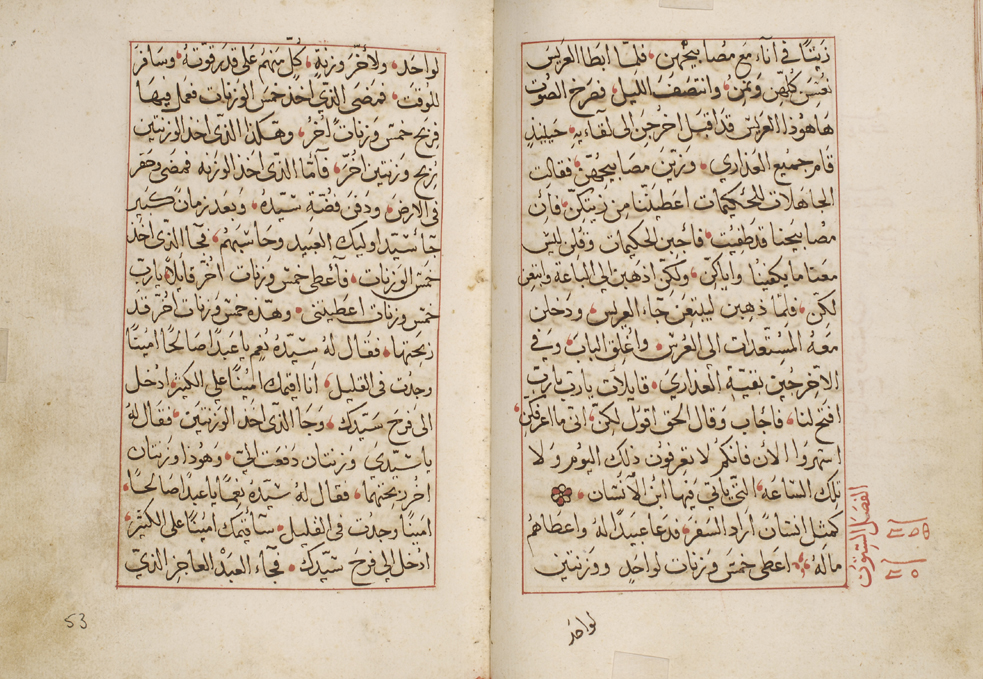 زيتًا في آناء مع مصابيحهن فلما ابطا العريس
نعسن كلهن ونمن وانتصف الليل فصرخ الصوت
هاهوذا العريس قد اقبل اخرجن الى لقاءيه حينيذٍ
قام جميع العذاري وزين مصابيحهن فقالت
الجاهلات للحكيمات اعطيننا من زيتكن فان
مصابيحنا قد طفيت فاجبن الحكيمات وقلن ليس
معنا ما يكفينا واياكن ولكن اذهبن الى الباعه وابتعن
لكن فلما ذهبن ليبتعن جاء العريس ودخلن
معه المستعدات الى العرس واغلق الباب وفي
الاخر جين بقية العذاري قايلات يارب يارب
افتح لنا فاجاب وقال الحق اقول لكن اني ما اعرفكن
اسهروا الان فانكم لا تعرفون ذلك اليوم ولا
تلك الساعة التي ياتي فيها ابن الانسان
كمثل انسان اراد السفر فدعا عبيدًا له واعطاهم
ماله اعطى خمس وزنات لواحدٍ ووزنتين
الفصل الستون
لواحد
لواحد ولاخر وزنة كل منهم على قدر قوته وسافر
للوقت فمضى الذي اخذ خمس الوزنات فعمل فيها
فربح خمس وزنات اخر وهكذا الذي اخذ الوزنتين
ربح وزنتين اخر فاما الذي اخذ الوزنه فمضى وحفر
في الارض ودفن فضة سيده وبعد زمان كبير
جا سيد اوليك العبيد وحاسبهم فجا الذي اخذ
خمس الوزنات فاعطى خمس وزنات اخر قايلا يارب
خمس وزنات اعطيتني وهذه خمس وزنات اخر قد
ربحتها فقال له سيده نعم يا عبدًا صالحًا امينًا
وجدت في القليل انا اقيمك امينًا على الكثير ادخل
الى فرح سيدك وجا الذي اخذ الوزنتين فقال له
يا سيدي وزنتان دفعت الي وهوذا وزنتان
اخر ربحتهما فقال له سيده نعمًا يا عبدًا صالحًا
امينًا وجدت في القليل ساقيمك امينًا على الكثير
ادخل الى فرح سيدك فجاء العبد العاجز الذي
53